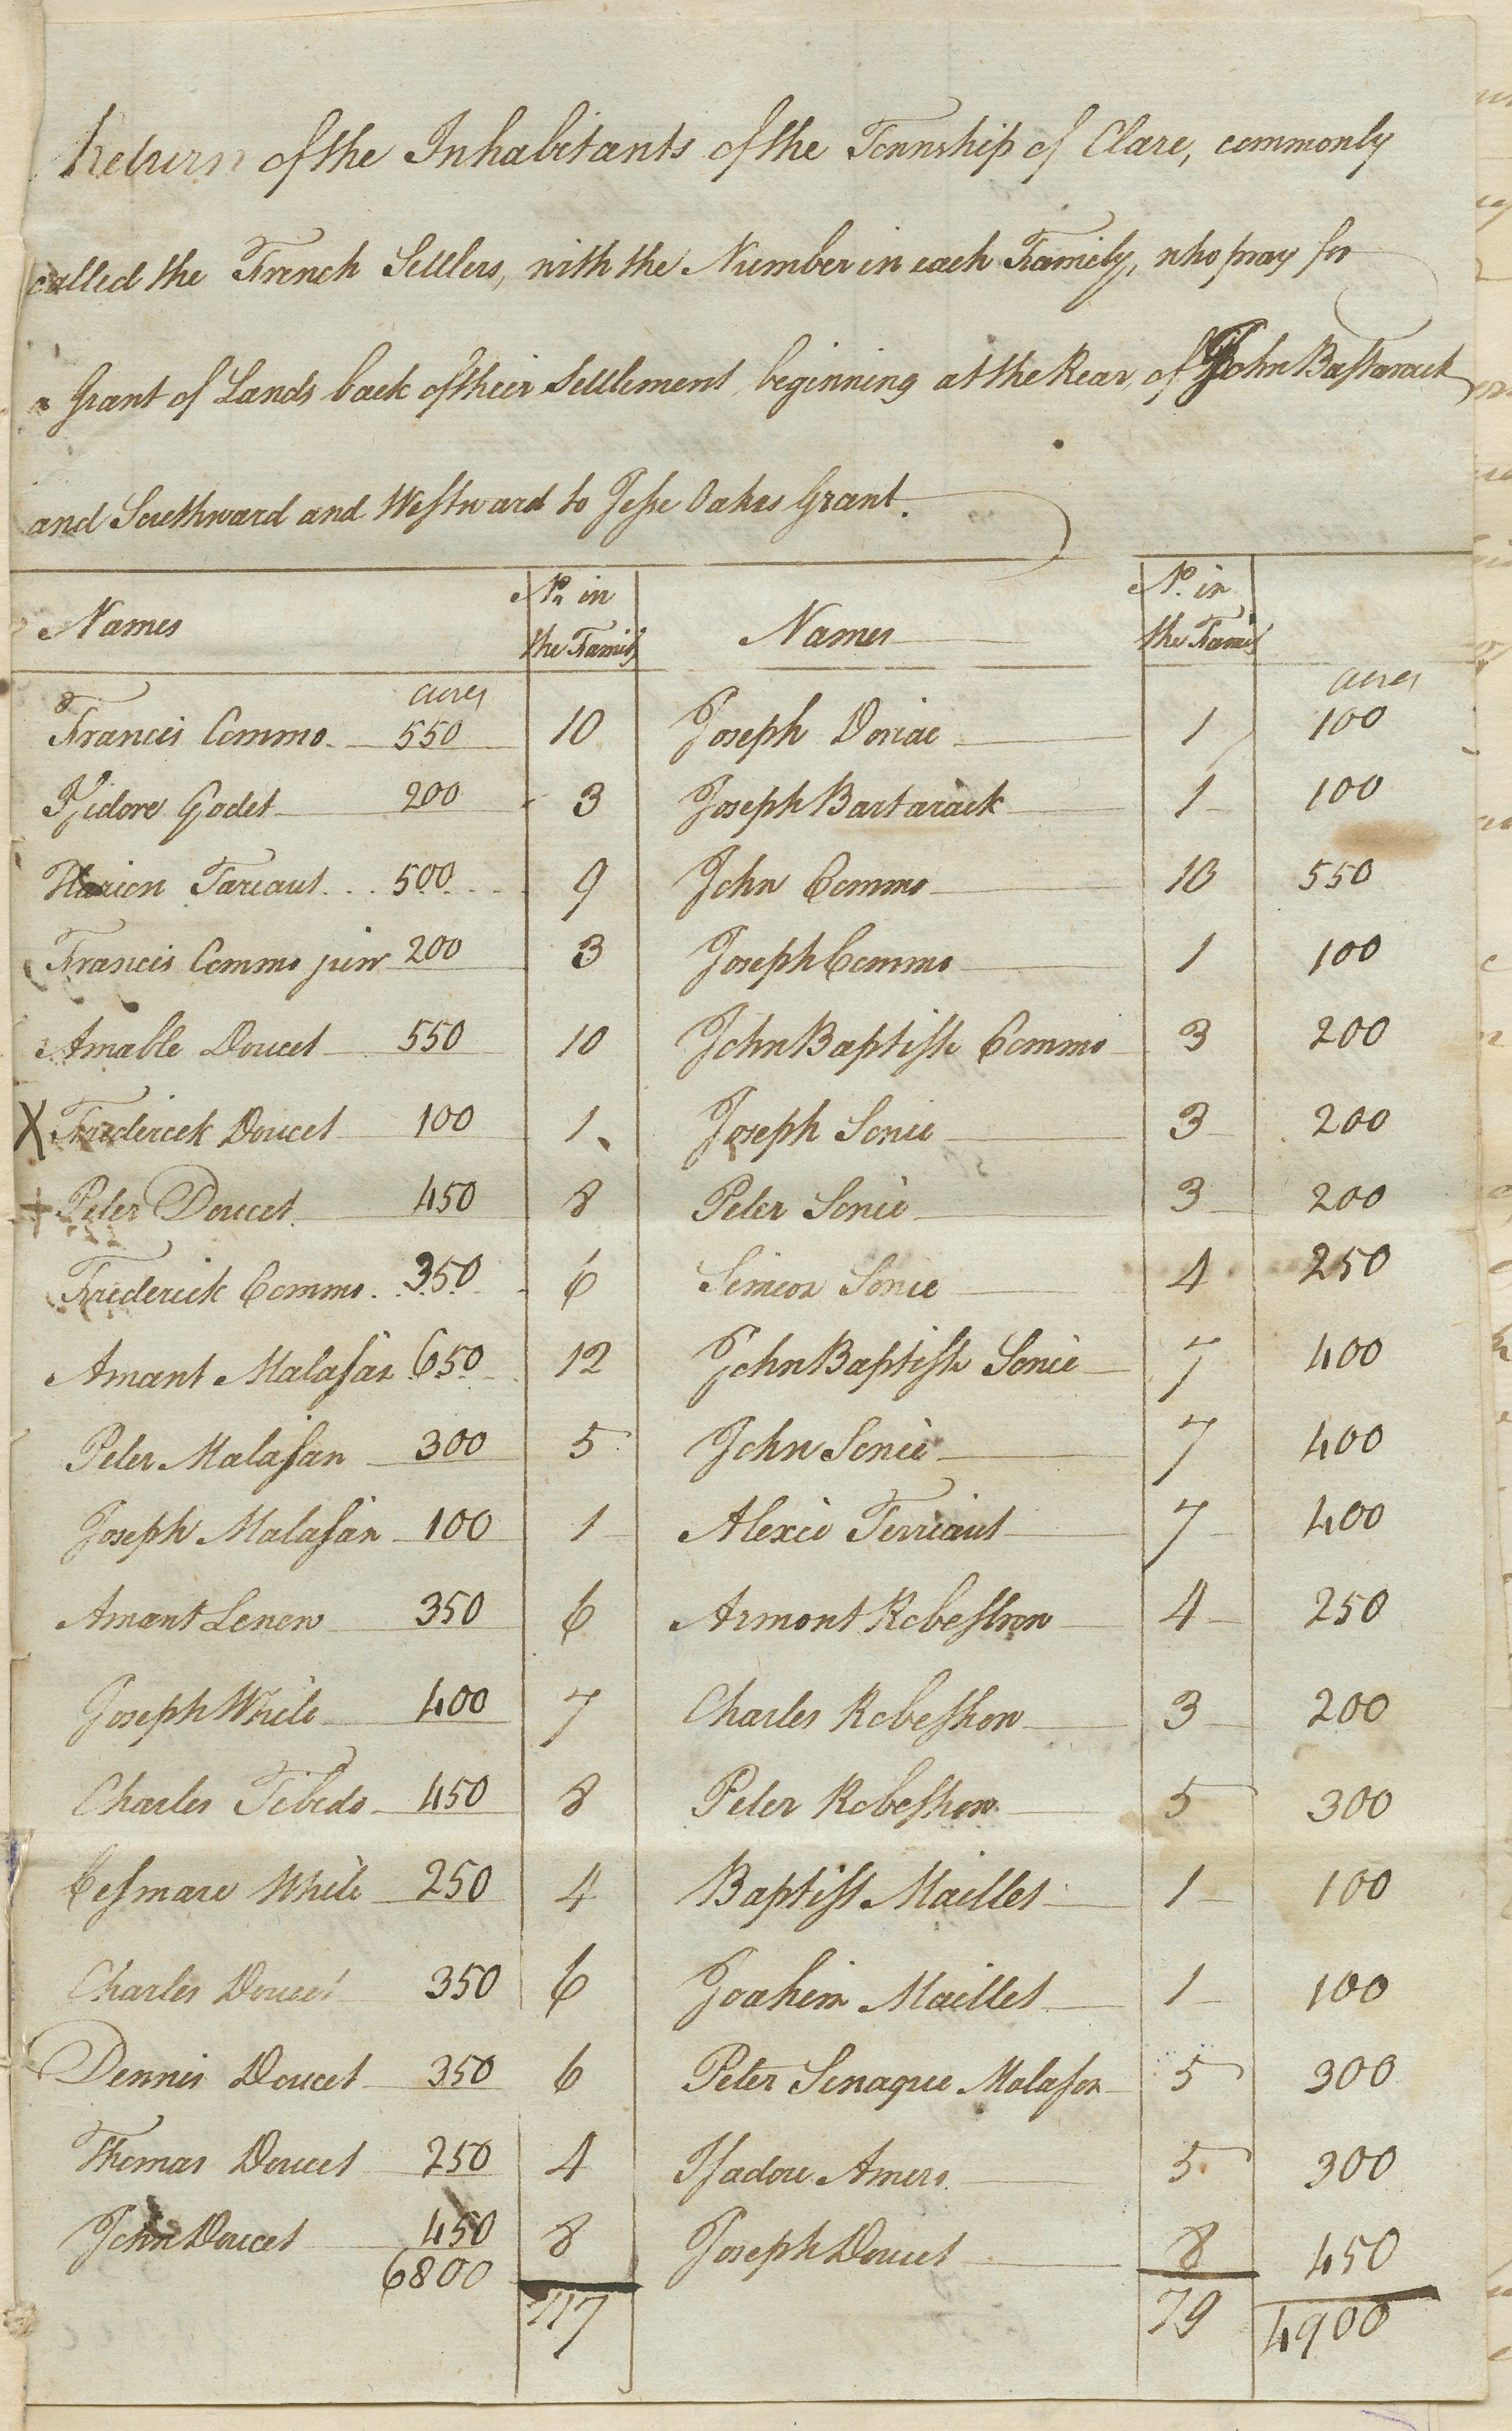 Return of the Inhabitants of the Township of Clare, commonly
called the French Settlers, with the Number in each Family, who pray for
a Grant of Lands back of their Settlement beginning at the Rear of John Bastarack
and Southward and Westward to Jesse Oakes Grant.
Names No. in the Family Names No. in the Family
acres acres
Francis Commo 550 10 Joseph Doriac 1 100
Isidore Godet 200 3 Joseph Bartarack 1 100
Tariaut 500 9 John Commo 10 550
Francis Commo junr 200 3 Joseph Commo 1 100
Amable Doucet 550 10 John Baptiste Commo 3 200
X Frederick Doucet 100 1 Joseph Sonie 3 200
+ Peter Doucet 450 8 Peter Sonie 3 200
Frederick Commo 350 6 Simeon Sonie 4 250
Amant Malasan 650 12 John Baptiste Sonie 7 400
Peter Malasan 300 5 John Sonie 7 400
Joseph Malasan 100 1 Alexie Terriaut 7 400
Amant Lenew 350 6 Armont Robeshon 4 250
Joseph White 400 7 Charles Robeshon 3 200
Charles Tibedo 450 8 Peter Robeshon 5 300
Cesmare White 250 4 Baptist Maillet 1 100
Charles Doucet 350 6 Joahim Maillet 1 100
Dennis Doucet 350 6 Peter Senaque Malason 5 300
Thomas Doucet 250 4 Isadore Amero 5 300
John Doucet 450 8 Joseph Doucet 8 450
6800 117 79 4900